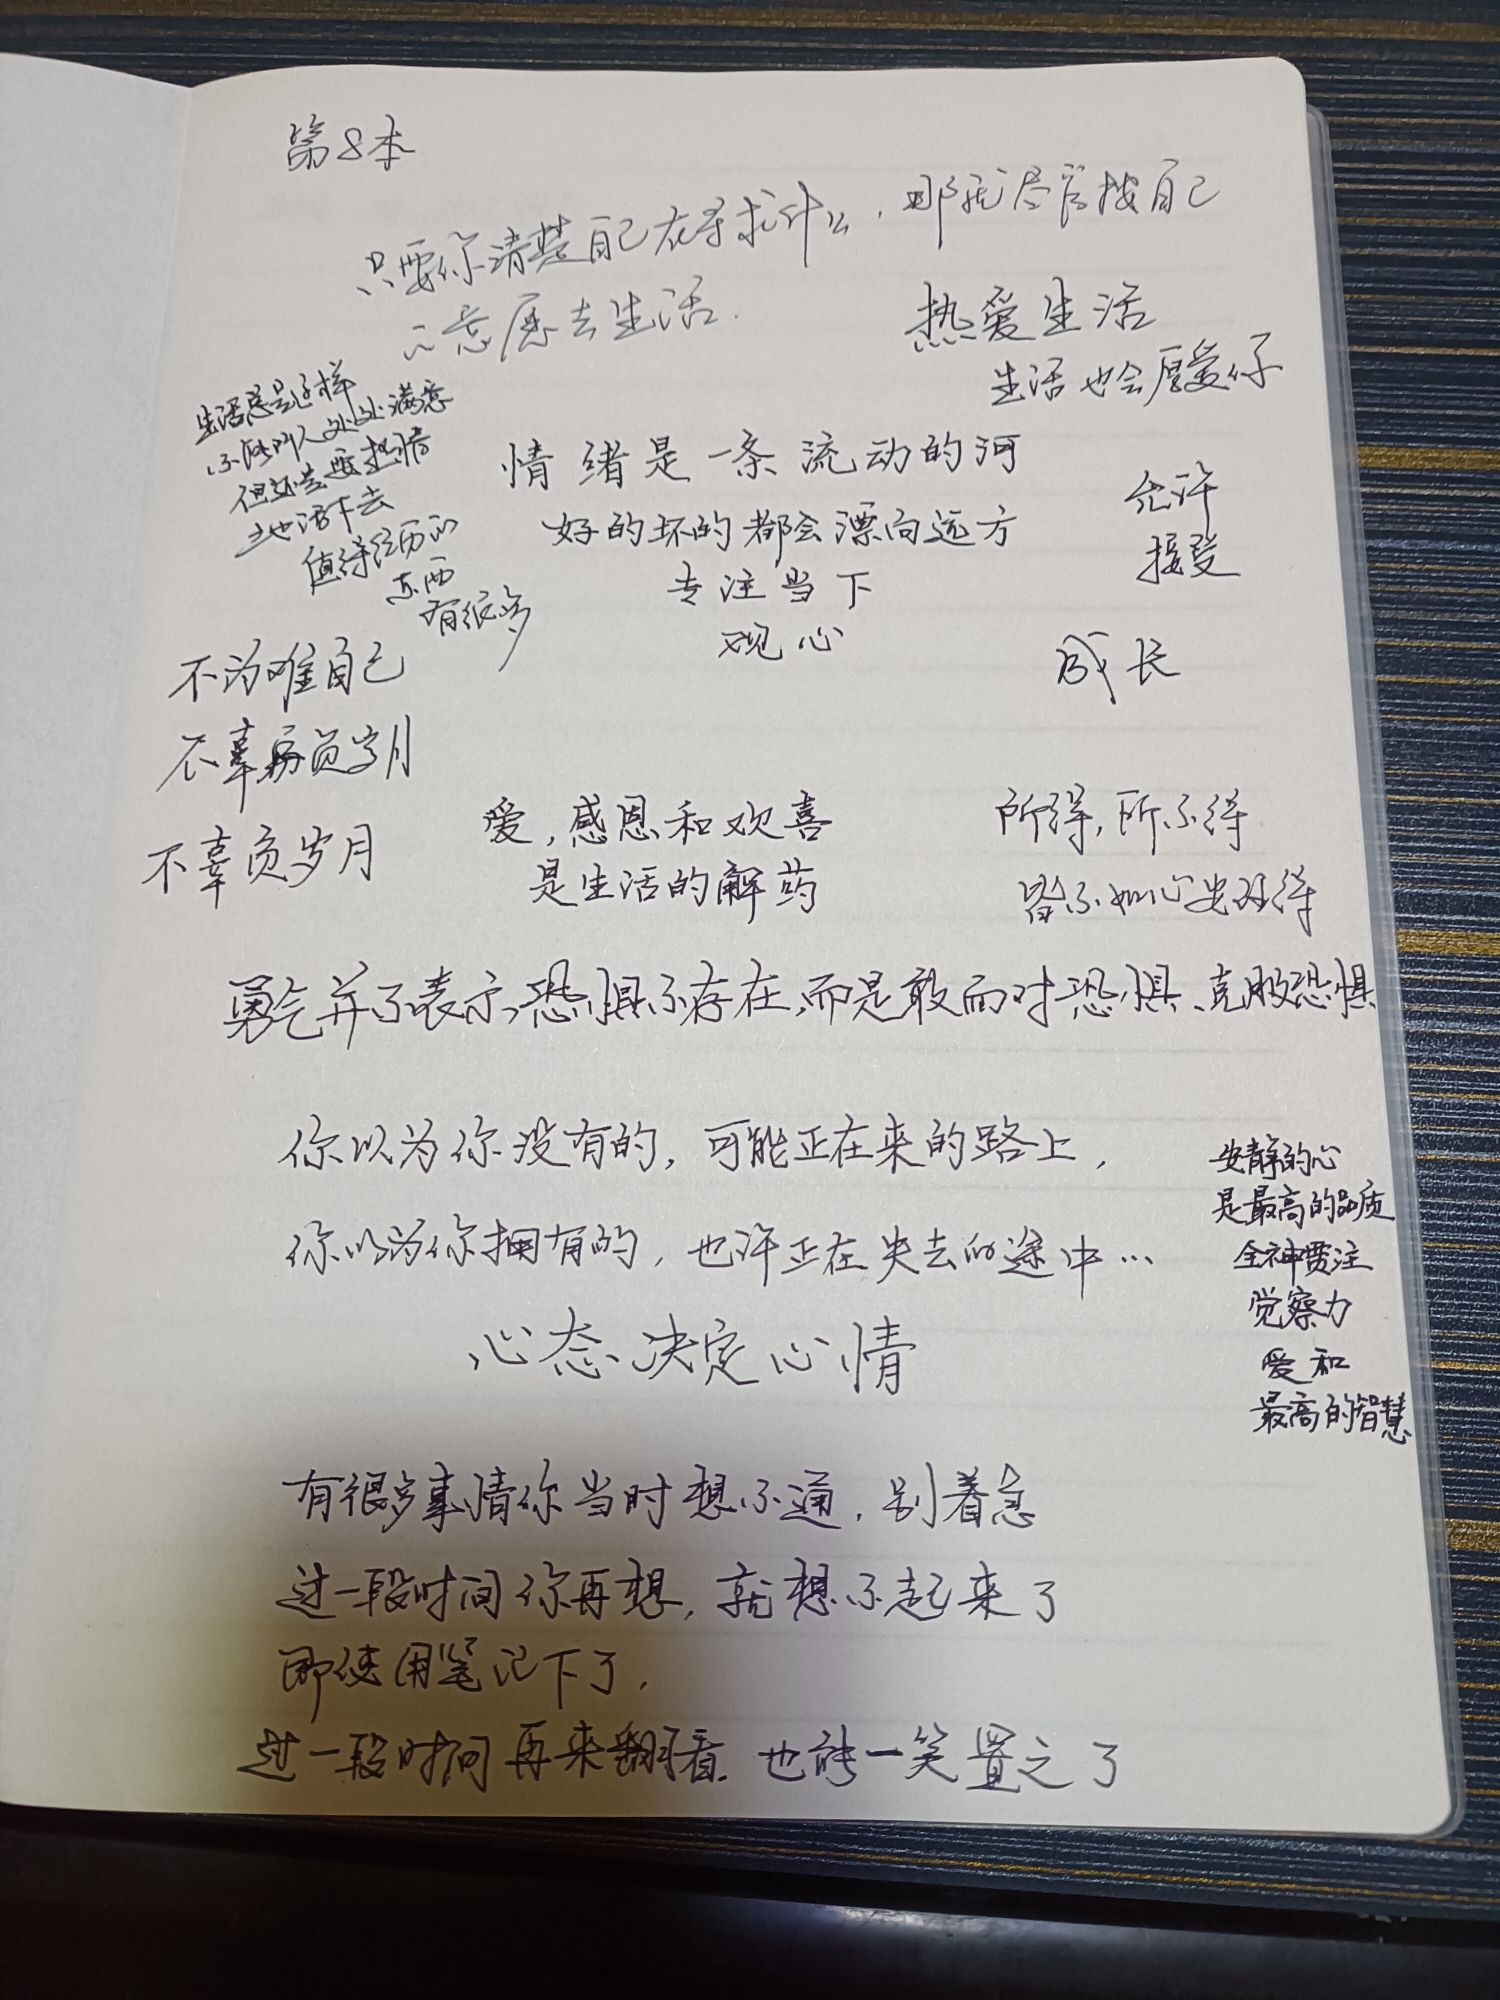 第8本
只要你清楚自己在寻求什么，那就尽管按自己
心意愿去生活.
热爱生活
生活也会厚爱你
生活总是这样
不能叫人处处满意
但还是要热情
地活下去
值得经历的
东西
有很多
情绪是一条流动的河
好的坏的都会漂向远方
专注当下
观心
允许
接受
成长
不为难自己
不辜负岁月
不辜负岁月
爱,感恩和欢喜
是生活的解药
所得,所不得
皆不如心安理得
勇气并不表示恐惧不存在,而是敢面对恐惧、克服恐惧
你以为你没有的,可能正在来的路上,
你以为你拥有的,也许正在失去的途中…
心态决定心情
安静的心
是最高的品质
全神贯注
觉察力
爱和
最高的智慧
有很多事情你当时想不通,别着急
过一段时间你再想,就想不起来了
即使用笔记下了,
过一段时间再来翻看.也能一笑置之了